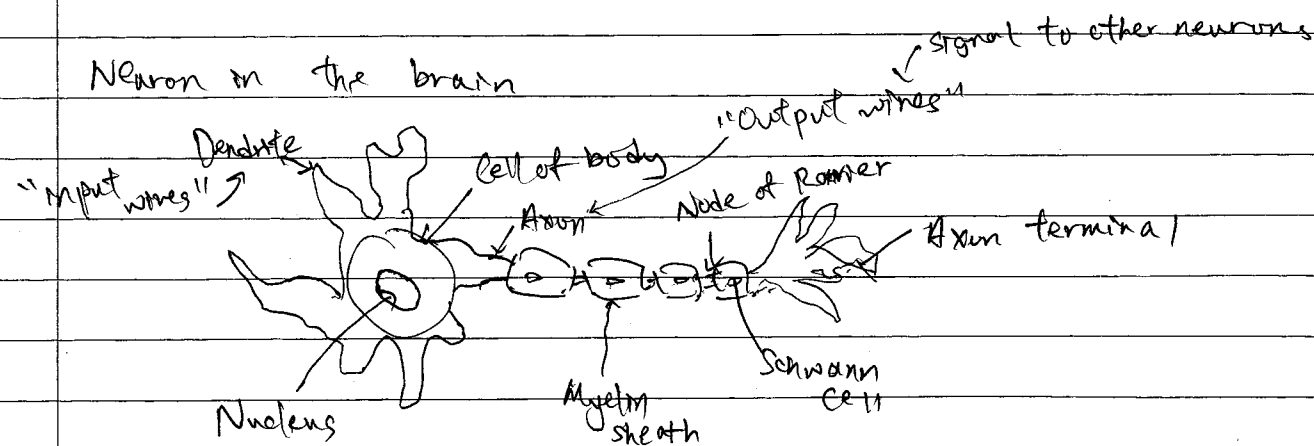 Neuron in the brain
signal to other neurons
"Output wires"
Dendrite
"input wires"
Cell of body
Axon
Node of Ranvier
Axon terminal
Nucleus
Myelin sheath
Schwann cell